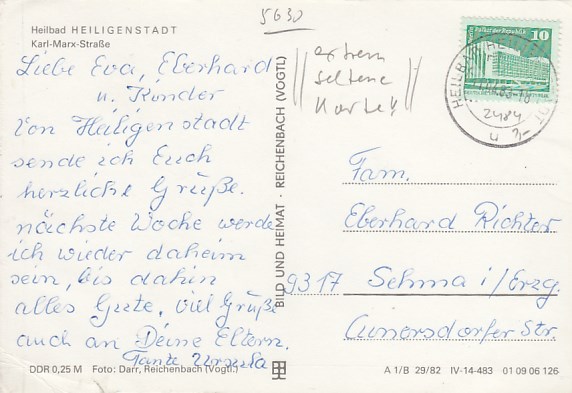 Heilbad HEILIGENSTADT
Karl-Marx-Straße
5630
extrem
seltene
Karte!!
Liebe Eva, Eberhard
u. Kinder
Von Heiligenstadt
sende ich Euch
herzliche Grüße.
nächste Woche werde
ich wieder daheim
sein, bis dahin
alles Gute, viel Grüße
auch an Deine Eltern.
Tante Ursula
BILD UND HEIMAT · REICHENBACH (VOGTL)
Palast der Republik
10
2484
Fam.
Eberhard Richter
9317 Sehma i/Erzg.
Cunersdorfer Str.
DDR 0,25 M Foto: Darr, Reichenbach (Vogtl.)
A 1/B 29/82 IV-14-483 01 09 06 126